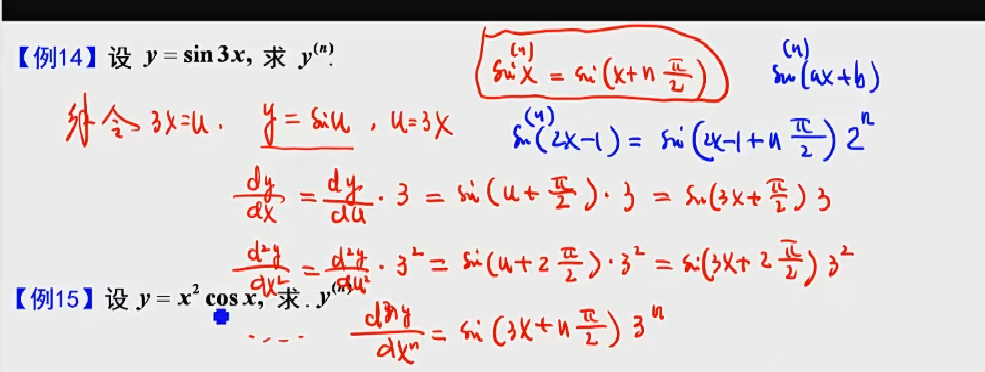 【例14】设 y = sin 3x, 求 y^{(n)}.
sin^{(n)} x = sin(x+n π/2)
sin^{(n)}(ax+b)
解 令 3x=u. y = sin u , u=3x
sin^{(n)}(2x-1) = sin(2x-1+n π/2) 2^n
dy/dx = dy/du · 3 = sin(u+π/2) · 3 = sin(3x+π/2) 3
d²y/dx² = d²y/du² · 3² = sin(u+2 π/2) · 3² = sin(3x+2 π/2) 3²
【例15】设 y = x² cos x, 求. y^{(n)}
..... dⁿy/dxⁿ = sin(3x+n π/2) 3^n